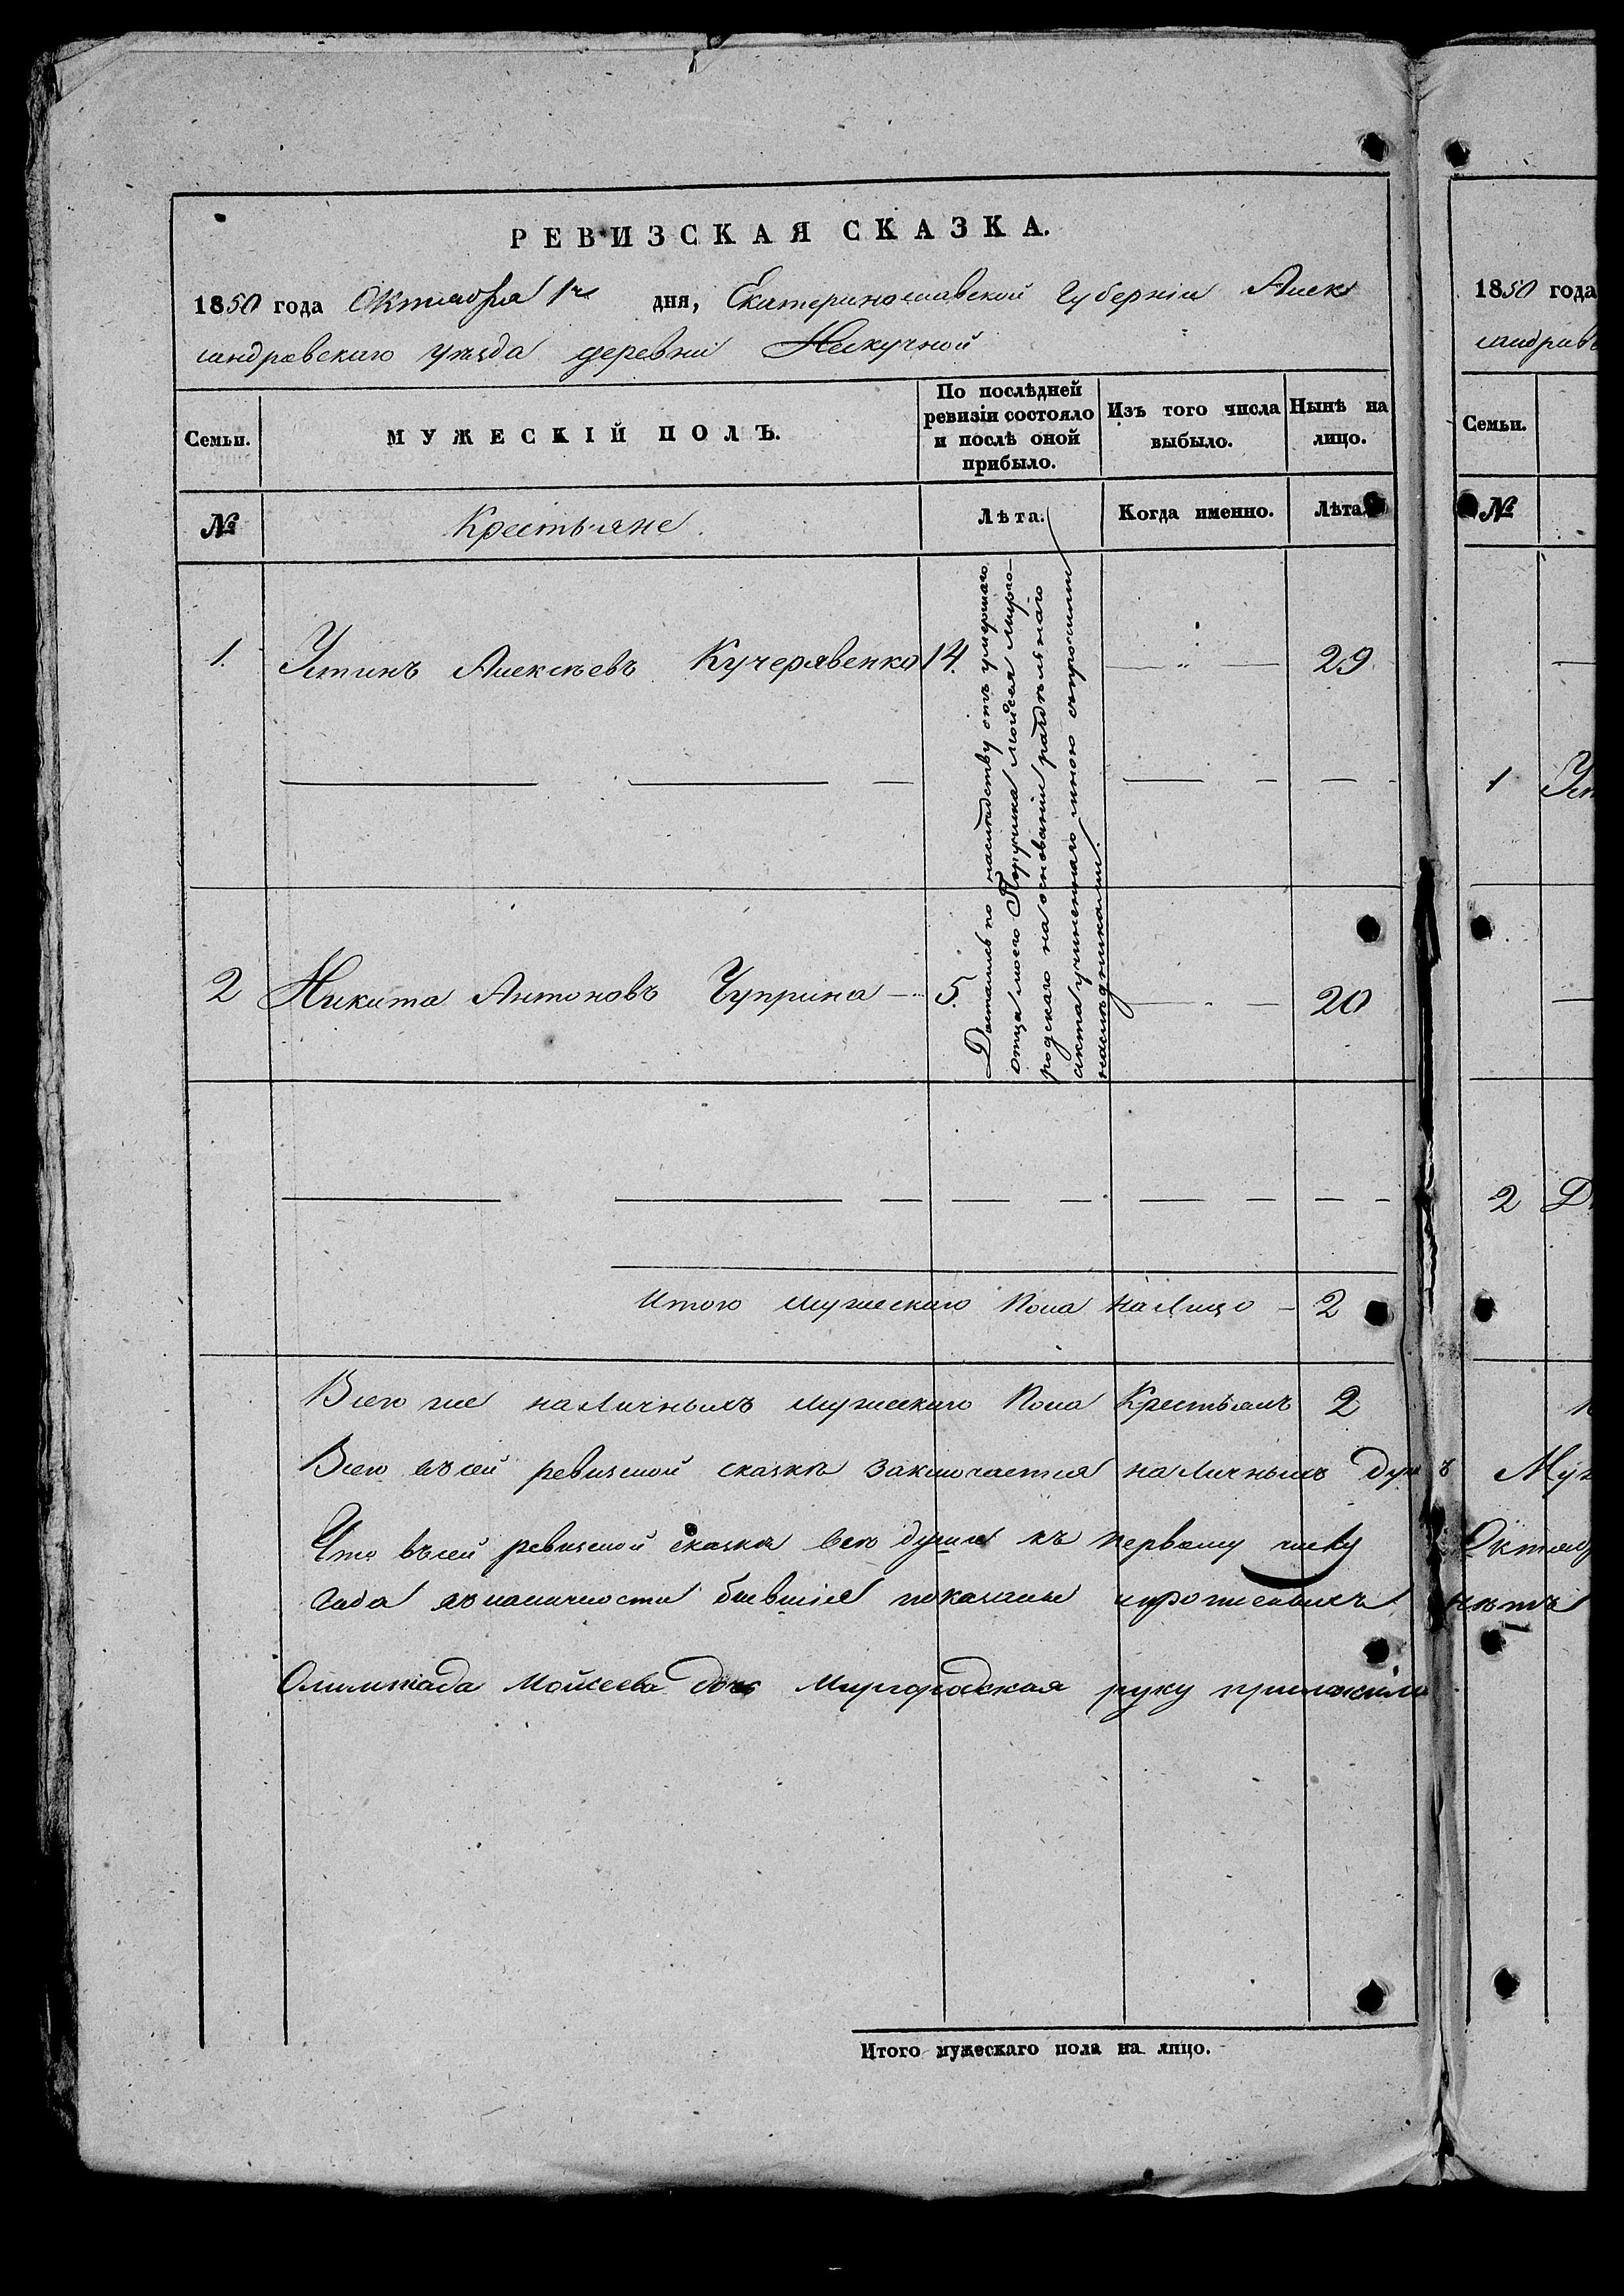 РЕВИЗСКАЯ СКАЗКА.
1850 года Октября 1го дня, Екатеринославской Губерніи Алек
сандровскаго уѣзда деревни Нескучной
Семьи.
МУЖЕСКІЙ ПОЛЪ.
По послѣдней
ревизіи состояло
и послѣ оной
прибыло.
Изъ того числа
выбыло.
Нынѣ на
лицо.
№
Крестьяне.
Лѣта.
Когда именно.
Лѣта
1. Устинъ Алексѣевъ Кучерявенко 14. — „ — 29.
2 Никита Антоновъ Чуприна — 5. — „ — 20
Достались по наслѣдству отъ умершаго
отца моего Поручика Мойсея Мирго-
родскаго на основаніи раздѣльнаго
акта учиненнаго мною съ прочими
наслѣдниками.
Итого мужескаго пола на лицо — 2
Всего же наличныхъ мужескаго пола Крестьянъ 2
Всего въ сей ревизской сказкѣ заключается наличныхъ душъ
Что въ сей ревизской сказкѣ всѣ души къ первому числу
года въ наличности бывшія показаны и прописныхъ нѣтъ
Олимпіада Мойсеева дочь Миргородская руку приложила
Итого мужескаго пола на лицо.
1850 года
сандровс
Семьи.
№
1 Уст
2
Муж
Октяб